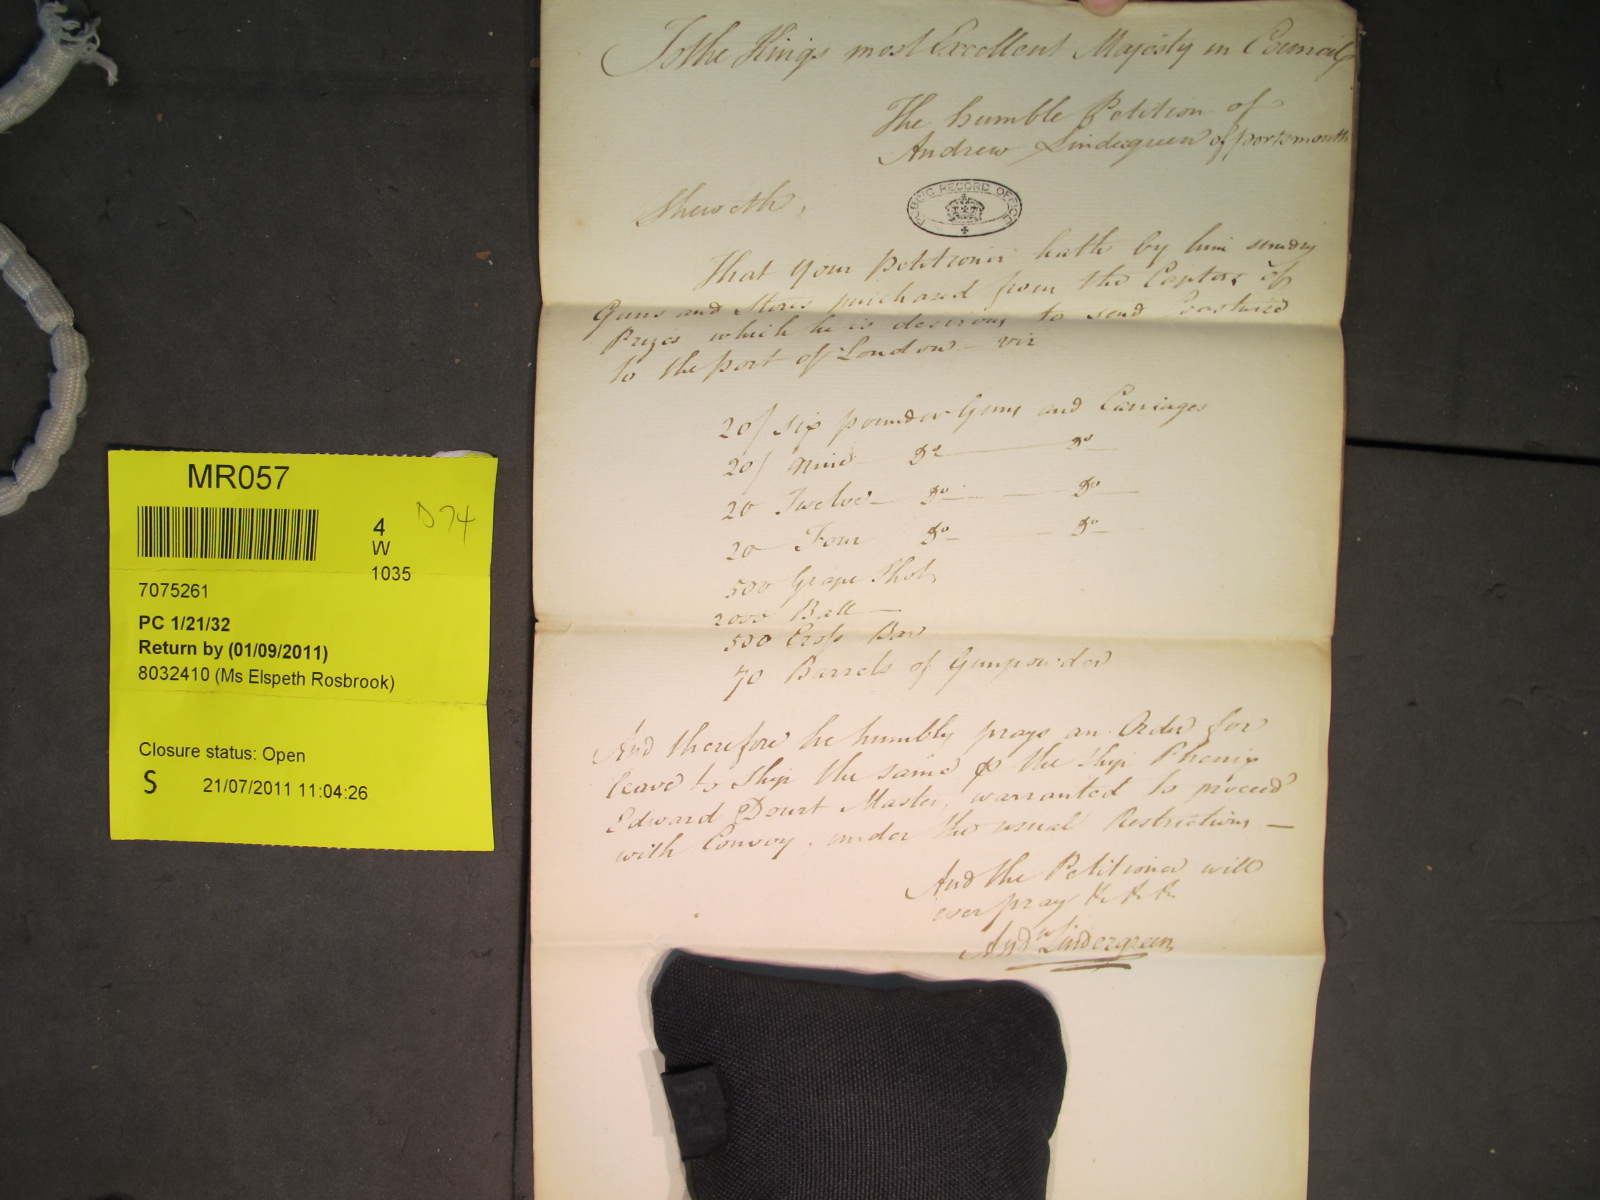 To the Kings most Excellent Majesty in Council
The humble Petition of
Andrew Lindegreen of Portsmouth
PUBLIC RECORD OFFICE
Sheweth,
That your Petitioner hath by him sundry
Guns and Stores purchased from the Captors of
Prizes which he is desirous to send Coastwise
to the port of London – viz
20/ Six pounder Guns and Carriages
20/ Nine Do Do
20 Twelve Do Do
20 Four Do Do
500 Grape Shot
2000 Ball
500 Cross Bar
70 Barrels of Gunpowder
And therefore he humbly prays an Order for
leave to Ship the same the Ship Phenix
Edward Master, warranted to proceed
with Convoy, under the usual Restrictions –
And the Petitioner will
ever pray &c &c &c
Andw Lindergreen
MR057
4
W
1035
D74
7075261
PC 1/21/32
Return by (01/09/2011)
8032410 (Ms Elspeth Rosbrook)
Closure status: Open
S 21/07/2011 11:04:26